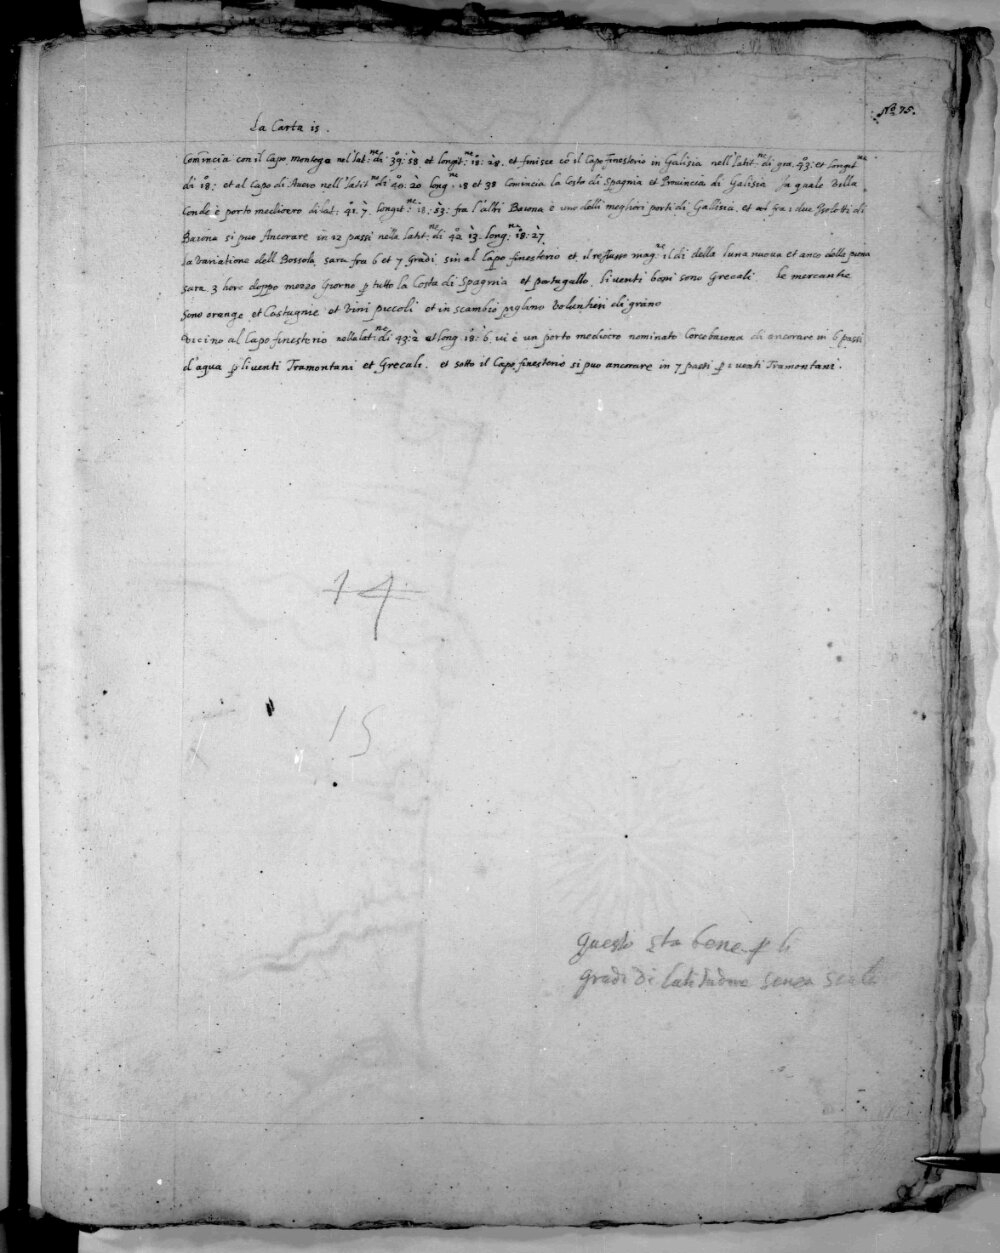 No 75.
La Carta 15.
Comincia con il Capo montego nel lat:ne di 39: 58 et longit:ne 18: 28. et finisce cō il Capo finesterio in Galisia nell'latit:ne di gra. 43: et longit:ne
di 18: et al Capo di Auero nell'latit:ne di 40: 20 long:ne 18 et 38 Comincia la Costa di Spagnia et Prouincia di Galisia In quale Villa
Conde è porto mediocro di lat: 41. 7. Longit:ne 18: 53: fra l'altri Baiona è uno delli meghiori porti di Gallisia. et al fra i due Isolotti di
Baiona si puo Ancorare in 12 passi nella latit:ne di 42 13. long:ne 18: 27
la Variatione dell Bossola, sara fra 6 et 7 Gradi sin al Capo finesterio et il reflusso mag:re il di della luna nuova et anco della piena
sara 3 hore doppo mezzo Giorno p tutto la Costa di Spagnia et portugallo, li venti boni sono Grecali le mercantie
sono orange et Castagnie et Vini piccoli et in scambio piglano Voluntieri di grano
Vicino al Capo finesterio nella lat:ne di 43: 2 et long. 18: 6. vi è un porto mediocro nominato Corcobaiona di ancorare in 6 passi
d'aqua p li venti Tramontani et Grecali. et sotto il Capo finesterio si puo ancorare in 7 passi p i venti Tramontani.
14
15
questo sta bene p li
gradi di latitudine senza scala